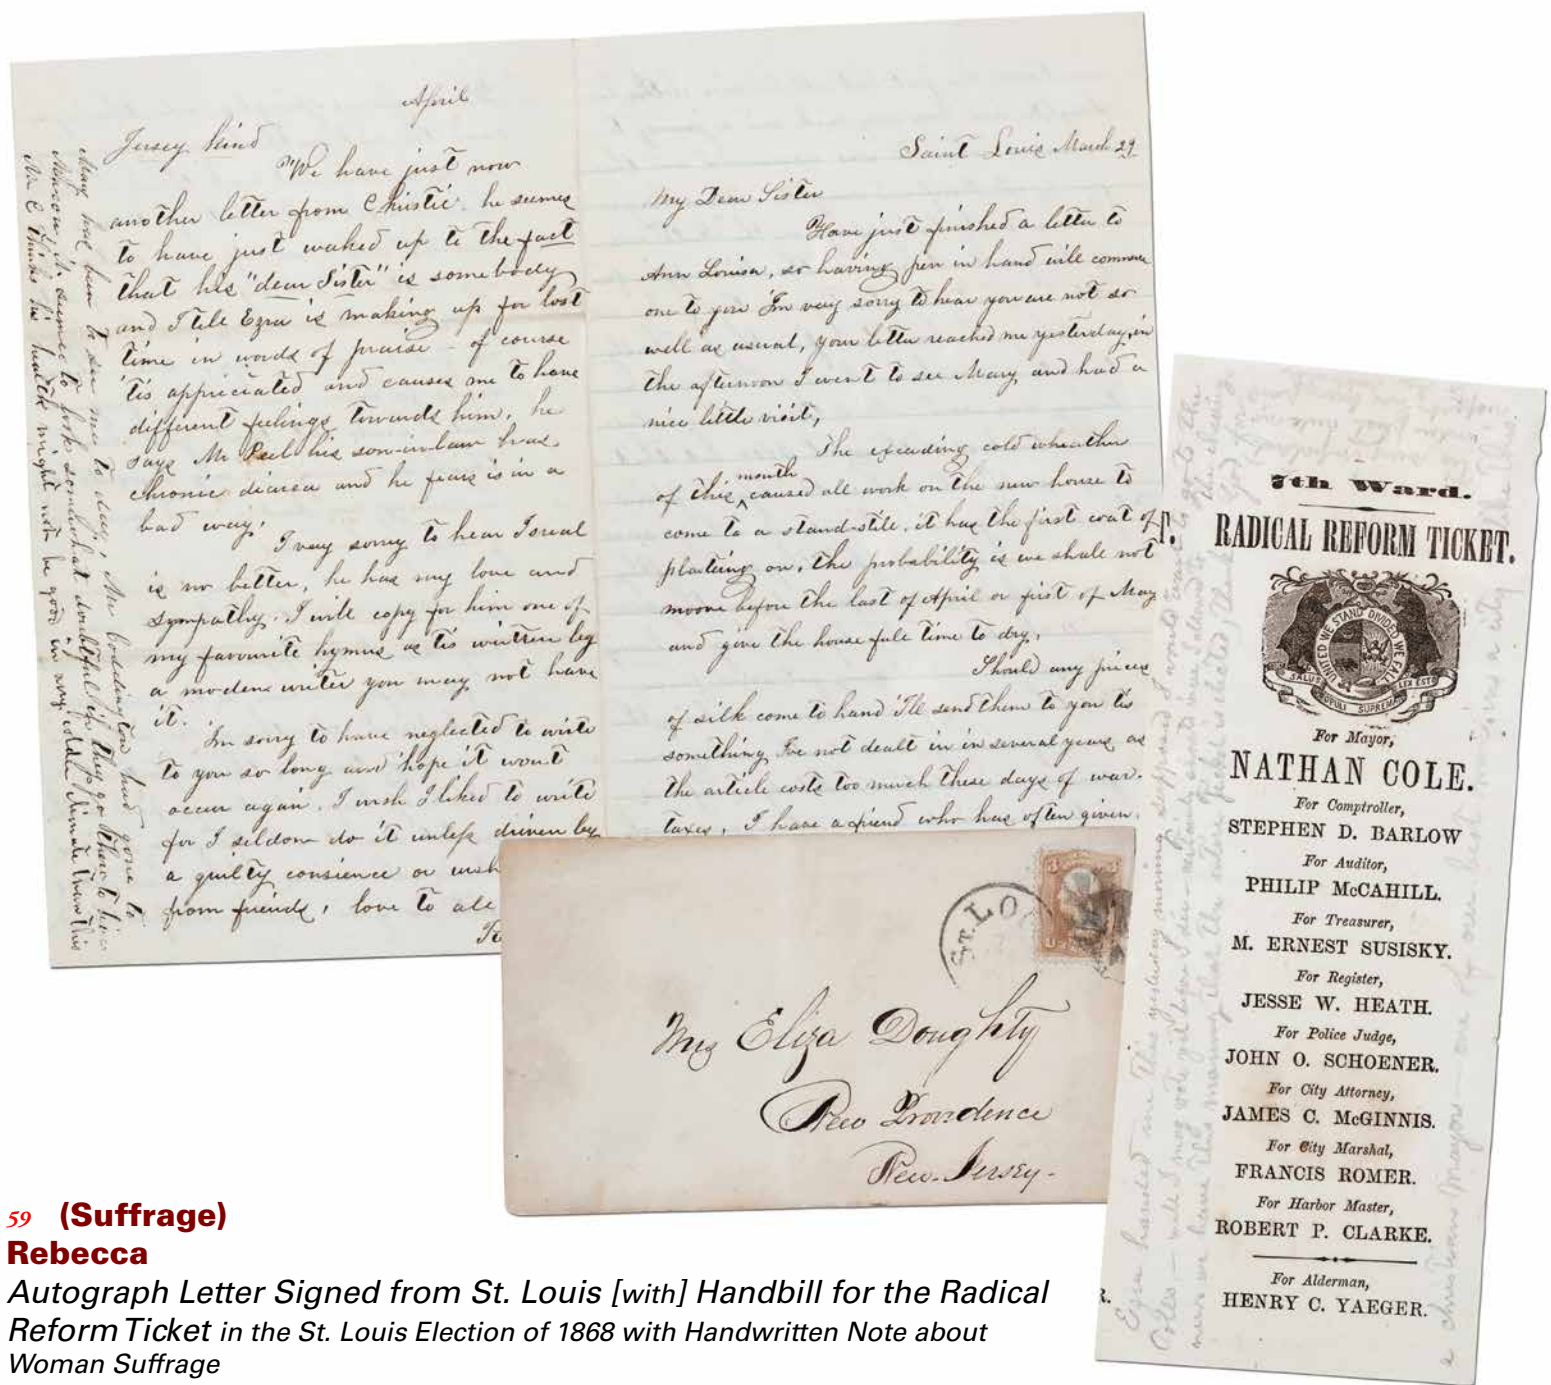 April
Jersey kind
We have just now
another letter from Christie. he seemes
to have just waked up to the fact
that his "dear Sister" is somebody
and I tell Ezra is making up for lost
time in words of praise - of course
'tis appreciated and causes me to have
different feelings towards him. he
says Mr Peel his son-in-law has
chronic diarea and he fears is in a
bad way.
I very sorry to hear Isreal
is no better, he has my love and
sympathy. I will copy for him one of
my favourite hymns as tis written by
a modern writer you may not have
it.
I'm sorry to have neglected to write
to you so long and hope it wont
occur again. I wish I liked to write
for I seldom do it unless driven by
a guilty consience or
from friends, love to all
Mary has been to see me to day, Mr Coddington had gone to
he seemes to look somewhat doubtful if they go there to live
Mr C thinks his health might not be good in any colder climate than this
Saint Louis March 29
My Dear Sister
Have just finished a letter to
Ann Louisa, so having pen in hand will commence
one to you I'm very sorry to hear you are not so
well as usual, your letter reached me yesterday, in
the afternoon I went to see Mary and had a
nice little visit,
The exceeding cold wheather
of this month caused all work on the new house to
come to a stand-still. it has the first coat of
plasteing on, the probability is we shall not
moove before the last of April or first of May
and give the house full time to dry.
Should any pieces
of silk come to hand I'll send them to you tis
something I've not dealt in in several years as
the article costs too much these days of war-
taxes, I have a friend who has often given
St. LO
Mrs Eliza Doughty
New Providence
New-Jersey-
T.
7th Ward.
RADICAL REFORM TICKET.
UNITED WE STAND DIVIDED WE FALL
SALUS POPULI SUPREMA LEX ESTO
For Mayor,
NATHAN COLE.
For Comptroller,
STEPHEN D. BARLOW
For Auditor,
PHILIP McCAHILL.
For Treasurer,
M. ERNEST SUSISKY.
For Register,
JESSE W. HEATH.
For Police Judge,
JOHN O. SCHOENER.
For City Attorney,
JAMES C. McGINNIS.
For City Marshal,
FRANCIS ROMER.
For Harbor Master,
ROBERT P. CLARKE.
For Alderman,
HENRY C. YAEGER.
R.
Ezra handed me this yesterday morning supposed I would want to go to the
Poles - will I may vote yet before I die
news we have this morning that the whole ticket is elected, thank God for
a christian Mayor - one of our best
59 (Suffrage)
Rebecca
Autograph Letter Signed from St. Louis [with] Handbill for the Radical
Reform Ticket in the St. Louis Election of 1868 with Handwritten Note about
Woman Suffrage